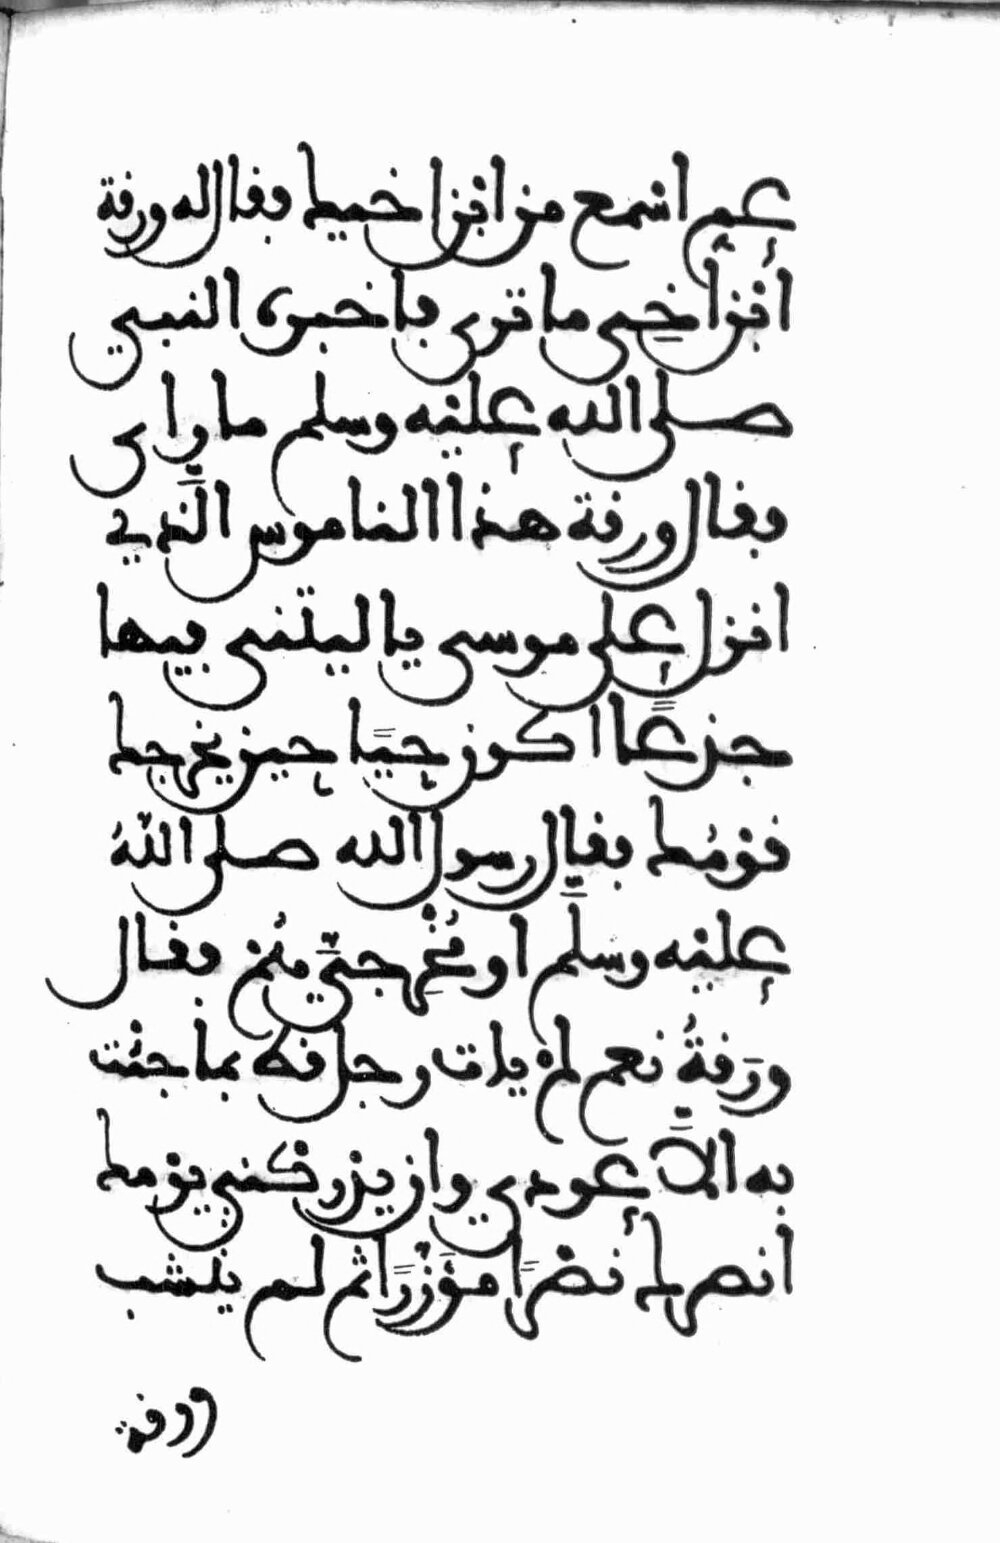 عم اسمع من ابن اخيك فقال له ورقة
ابن اخي ما ترى فاخبره النبي
صلى الله عليه وسلم ما راى
فقال ورقة هذا الناموس الَّذي
انزل على موسى يا ليتني فيها
جذعًا اكون حيًا حين يخرجك
قومُك فقال رسول الله صلى اللهُ
عليه وسلَّم او مُخْرِجيّ هُمْ فقال
ورَقةُ نعم لمْ يات رجل قط بما جئت
به الاَّ عودي وان يدركني يومك
انصرك نصْرًا مؤزَّرًا ثم لم ينشب
ورقة